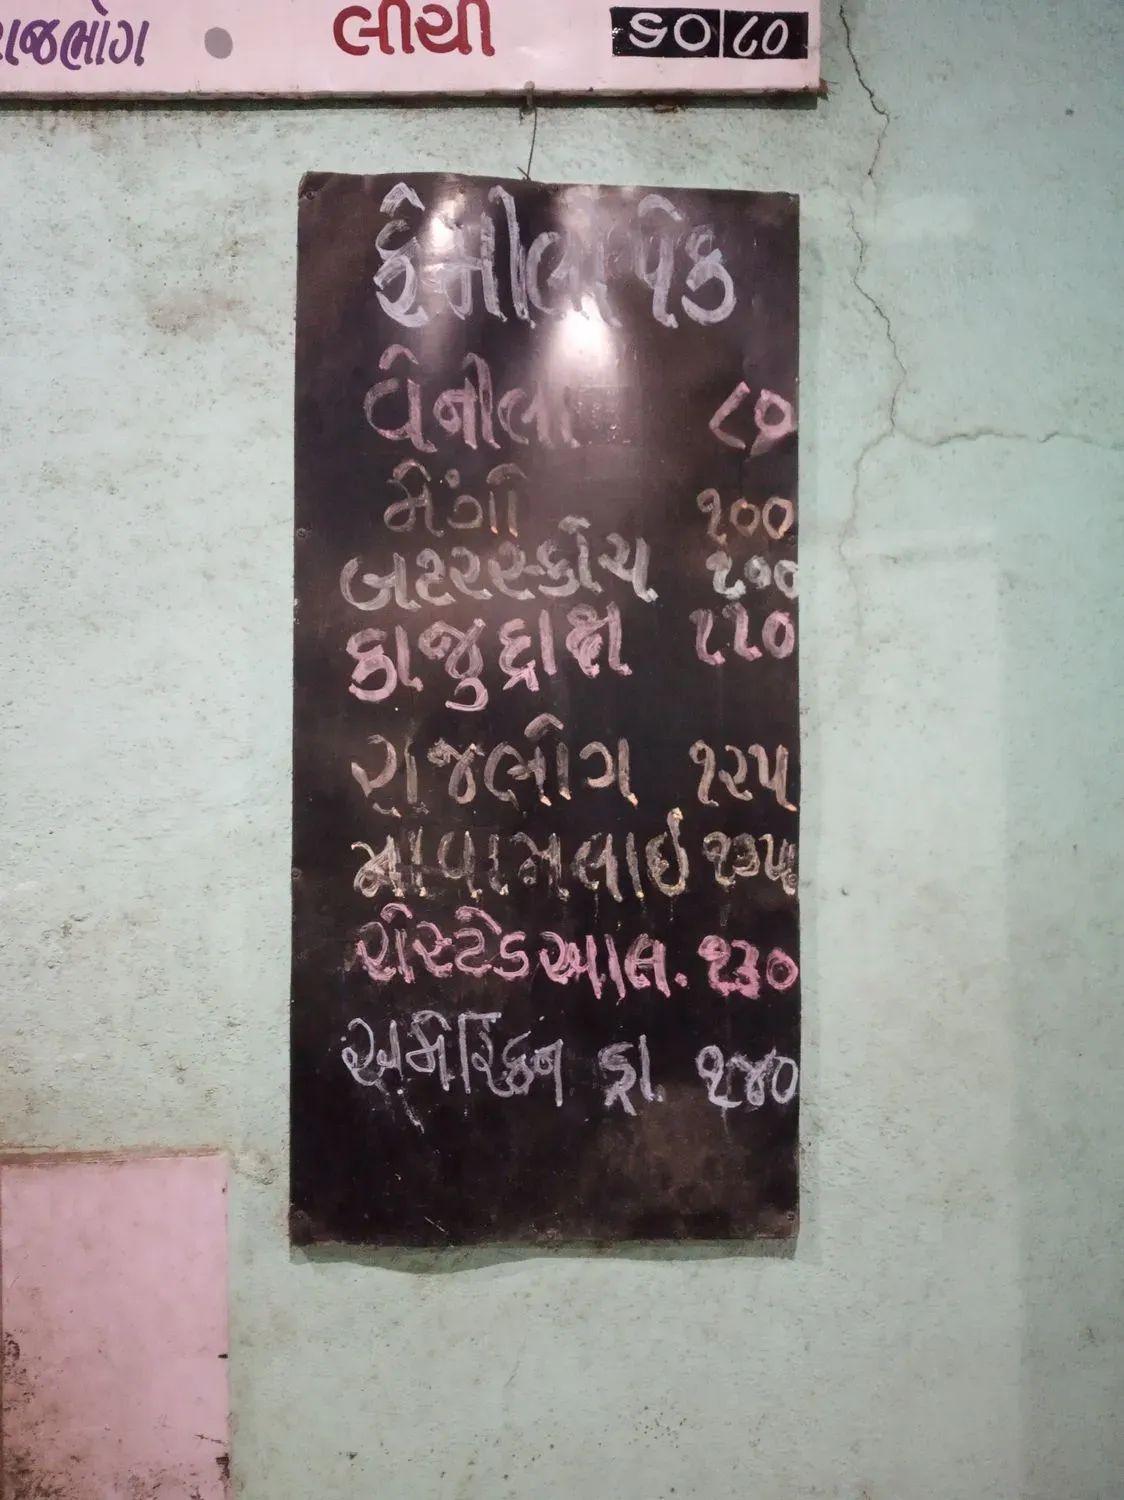 રાજભોગ લીચી ૬૦ ૮૦
ફેમીલી પેક
વેનીલા ૮૦
મેંગો ૧૦૦
બટરસ્કોચ ૧૦૦
કાજુદ્રાક્ષ ૧૧૦
રાજભોગ ૧૨૫
માવામલાઈ ૧૩૫
રોસ્ટેડ આલ. ૧૩૦
અમેરિકન ડ્રા. ૧૪૦